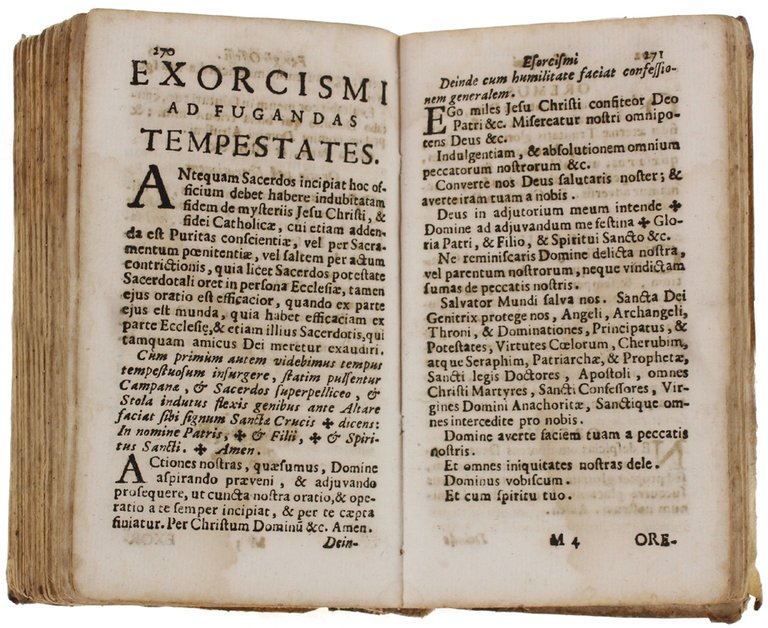 270
EXORCISMI
AD FUGANDAS
TEMPESTATES.
ANtequam Sacerdos incipiat hoc of-
ficium debet habere indubitatam
fidem de mysteriis Jesu Christi, &
fidei Catholicæ, cui etiam adden-
da est Puritas conscientiæ, vel per Sacra-
mentum pœnitentiæ, vel saltem per actum
contrictionis, quia licet Sacerdos potestate
Sacerdotali oret in persona Ecclesiæ, tamen
ejus oratio est efficacior, quando ex parte
ejus est munda, quia habet efficaciam ex
parte Ecclesię, & etiam illius Sacerdotis, qui
tamquam amicus Dei meretur exaudiri.
Cum primum autem videbimus tempus
tempestuosum insurgere, statim pulsentur
Campanæ, & Sacerdos superpelliceo, &
Stola indutus flexis genibus ante Altare
faciat sibi signum Sanctæ Crucis ✠ dicens:
In nomine Patris, ✠ & Filii, ✠ & Spiri-
tus Sancti. ✠ Amen.
ACtiones nostras, quæsumus, Domine
aspirando præveni, & adjuvando
prosequere, ut cuncta nostra oratio, & ope-
ratio a te semper incipiat, & per te cæpta
finiatur. Per Christum Dominũ &c. Amen.
Dein-
Esorcismi 271
Deinde cum humilitate faciat confessio-
nem generalem.
EGo miles Jesu Christi confiteor Deo
Patri &c. Misereatur nostri omnipo-
tens Deus &c.
Indulgentiam, & absolutionem omnium
peccatorum nostrorum &c.
Converte nos Deus salutaris noster; &
averte iram tuam a nobis.
Deus in adjutorium meum intende ✠
Domine ad adjuvandum me festina ✠ Glo-
ria Patri, & Filio, & Spiritui Sancto &c.
Ne reminiscaris Domine delicta nostra,
vel parentum nostrorum, neque vindictam
sumas de peccatis nostris.
Salvator Mundi salva nos. Sancta Dei
Genitrix protege nos, Angeli, Archangeli,
Throni, & Dominationes, Principatus, &
Potestates, Virtutes Cœlorum, Cherubim,
atque Seraphim, Patriarchæ, & Prophetæ,
Sancti legis Doctores, Apostoli, omnes
Christi Martyres, Sancti Confessores, Vir-
gines Domini Anachoritæ, Sanctique om-
nes intercedite pro nobis.
Domine averte faciem tuam a peccatis
nostris.
Et omnes iniquitates nostras dele.
Dominus vobiscum.
Et cum spiritu tuo.
M 4 ORE-